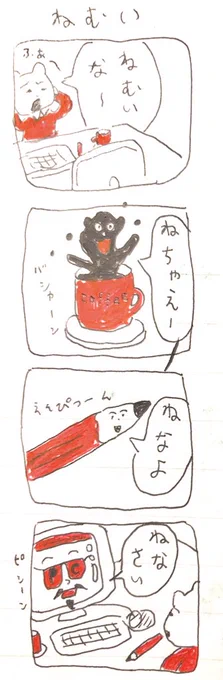 ねむい
ふぁ
ねむい
な〜
ねちゃえー
バシャーン
COFFEE
ねなよ
えんぴつーん
ねな
さい
PC
ピシーン